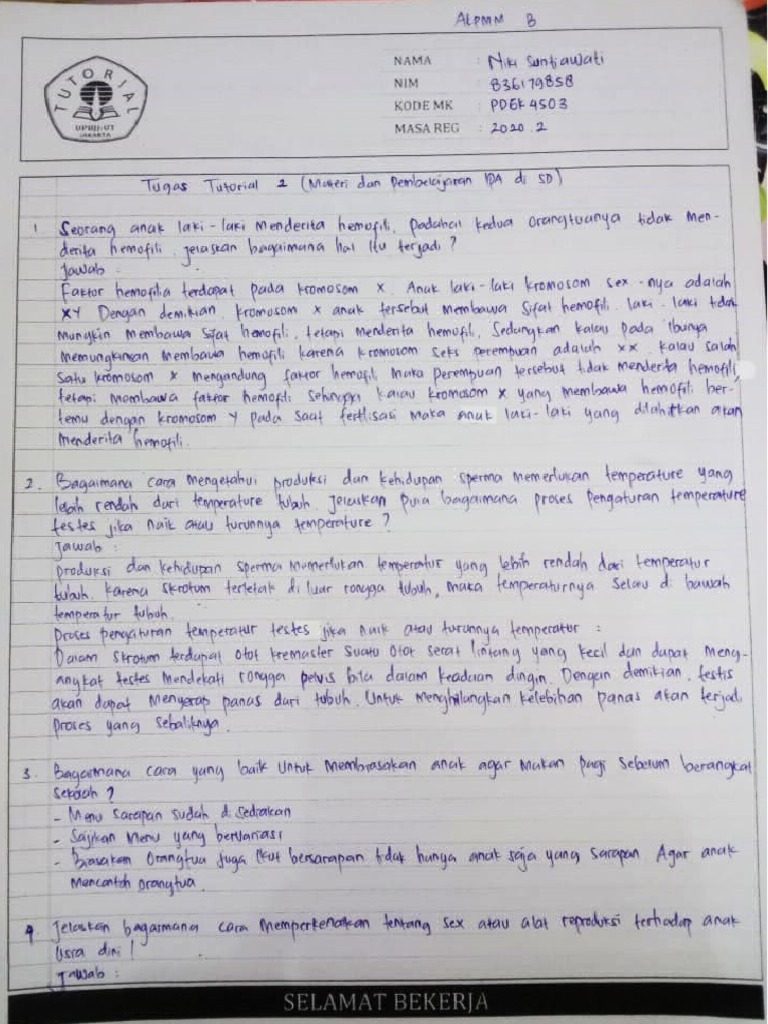 ALPMM B
TUTORIAL
UPBJJ-UT
JAKARTA
NAMA : Niki Suntiawati
NIM : 836179858
KODE MK : PDGK 4503
MASA REG : 2020.2
Tugas Tutorial 2 (Materi dan Pembelajaran IPA di SD)
1 Seorang anak laki-laki menderita hemofili, padahal kedua orangtuanya tidak men-
derita hemofili. jelaskan bagaimana hal itu terjadi?
Jawab :
Faktor hemofilia terdapat pada kromosom X. Anak laki-laki kromosom sex-nya adalah
XY Dengan demikian, kromosom x anak tersebut membawa sifat hemofili. laki-laki tidak
mungkin membawa sifat hemofili, tetapi menderita hemofili, Sedangkan kalau pada Ibunya
memungkinkan membawa hemofili karena kromosom seks perempuan adalah xx. kalau salah
satu kromosom x mengandung faktor hemofili maka perempuan tersebut tidak menderita hemofili,
tetapi membawa faktor hemofili sehingga kalau kromosom x yang membawa hemofili ber-
temu dengan kromosom Y pada saat fertlisasi maka anak laki-laki yang dilahirkan akan
menderita hemofili.
2. Bagaimana cara mengetahui produksi dan kehidupan sperma memerlukan temperature yang
lebih rendah dari temperature tubuh. Jelaskan pula bagaimana proses pengaturan temperature
testes jika naik atau turunnya temperature?
Jawab :
produksi dan kehidupan sperma memerlukan temperatur yang lebih rendah dari temperatur
tubuh. karena skrotum terletak di luar rongga tubuh, maka temperaturnya selalu di bawah
temperatur tubuh.
Proses pengaturan temperatur testes jika naik atau turunnya temperatur :
Dalam skrotum terdapat otot kremaster suatu otot serat lintang yang kecil dan dapat meng-
angkat testes mendekati rongga pelvis bila dalam keadaan dingin. Dengan demikian, testis
akan dapat menyerap panas dari tubuh. Untuk menghilangkan kelebihan panas akan terjadi
proses yang sebaliknya.
3. Bagaimana cara yang baik untuk membiasakan anak agar makan pagi sebelum berangkat
sekolah?
- Menu sarapan sudah disediakan
- Sajikan Menu yang bervariasi
- Biasakan Orangtua juga ikut bersarapan tidak hanya anak saja yang sarapan. Agar anak
mencontoh orangtua.
4 Jelaskan bagaimana cara memperkenalkan tentang sex atau alat reproduksi terhadap anak
usia dini!
Jawab :
SELAMAT BEKERJA